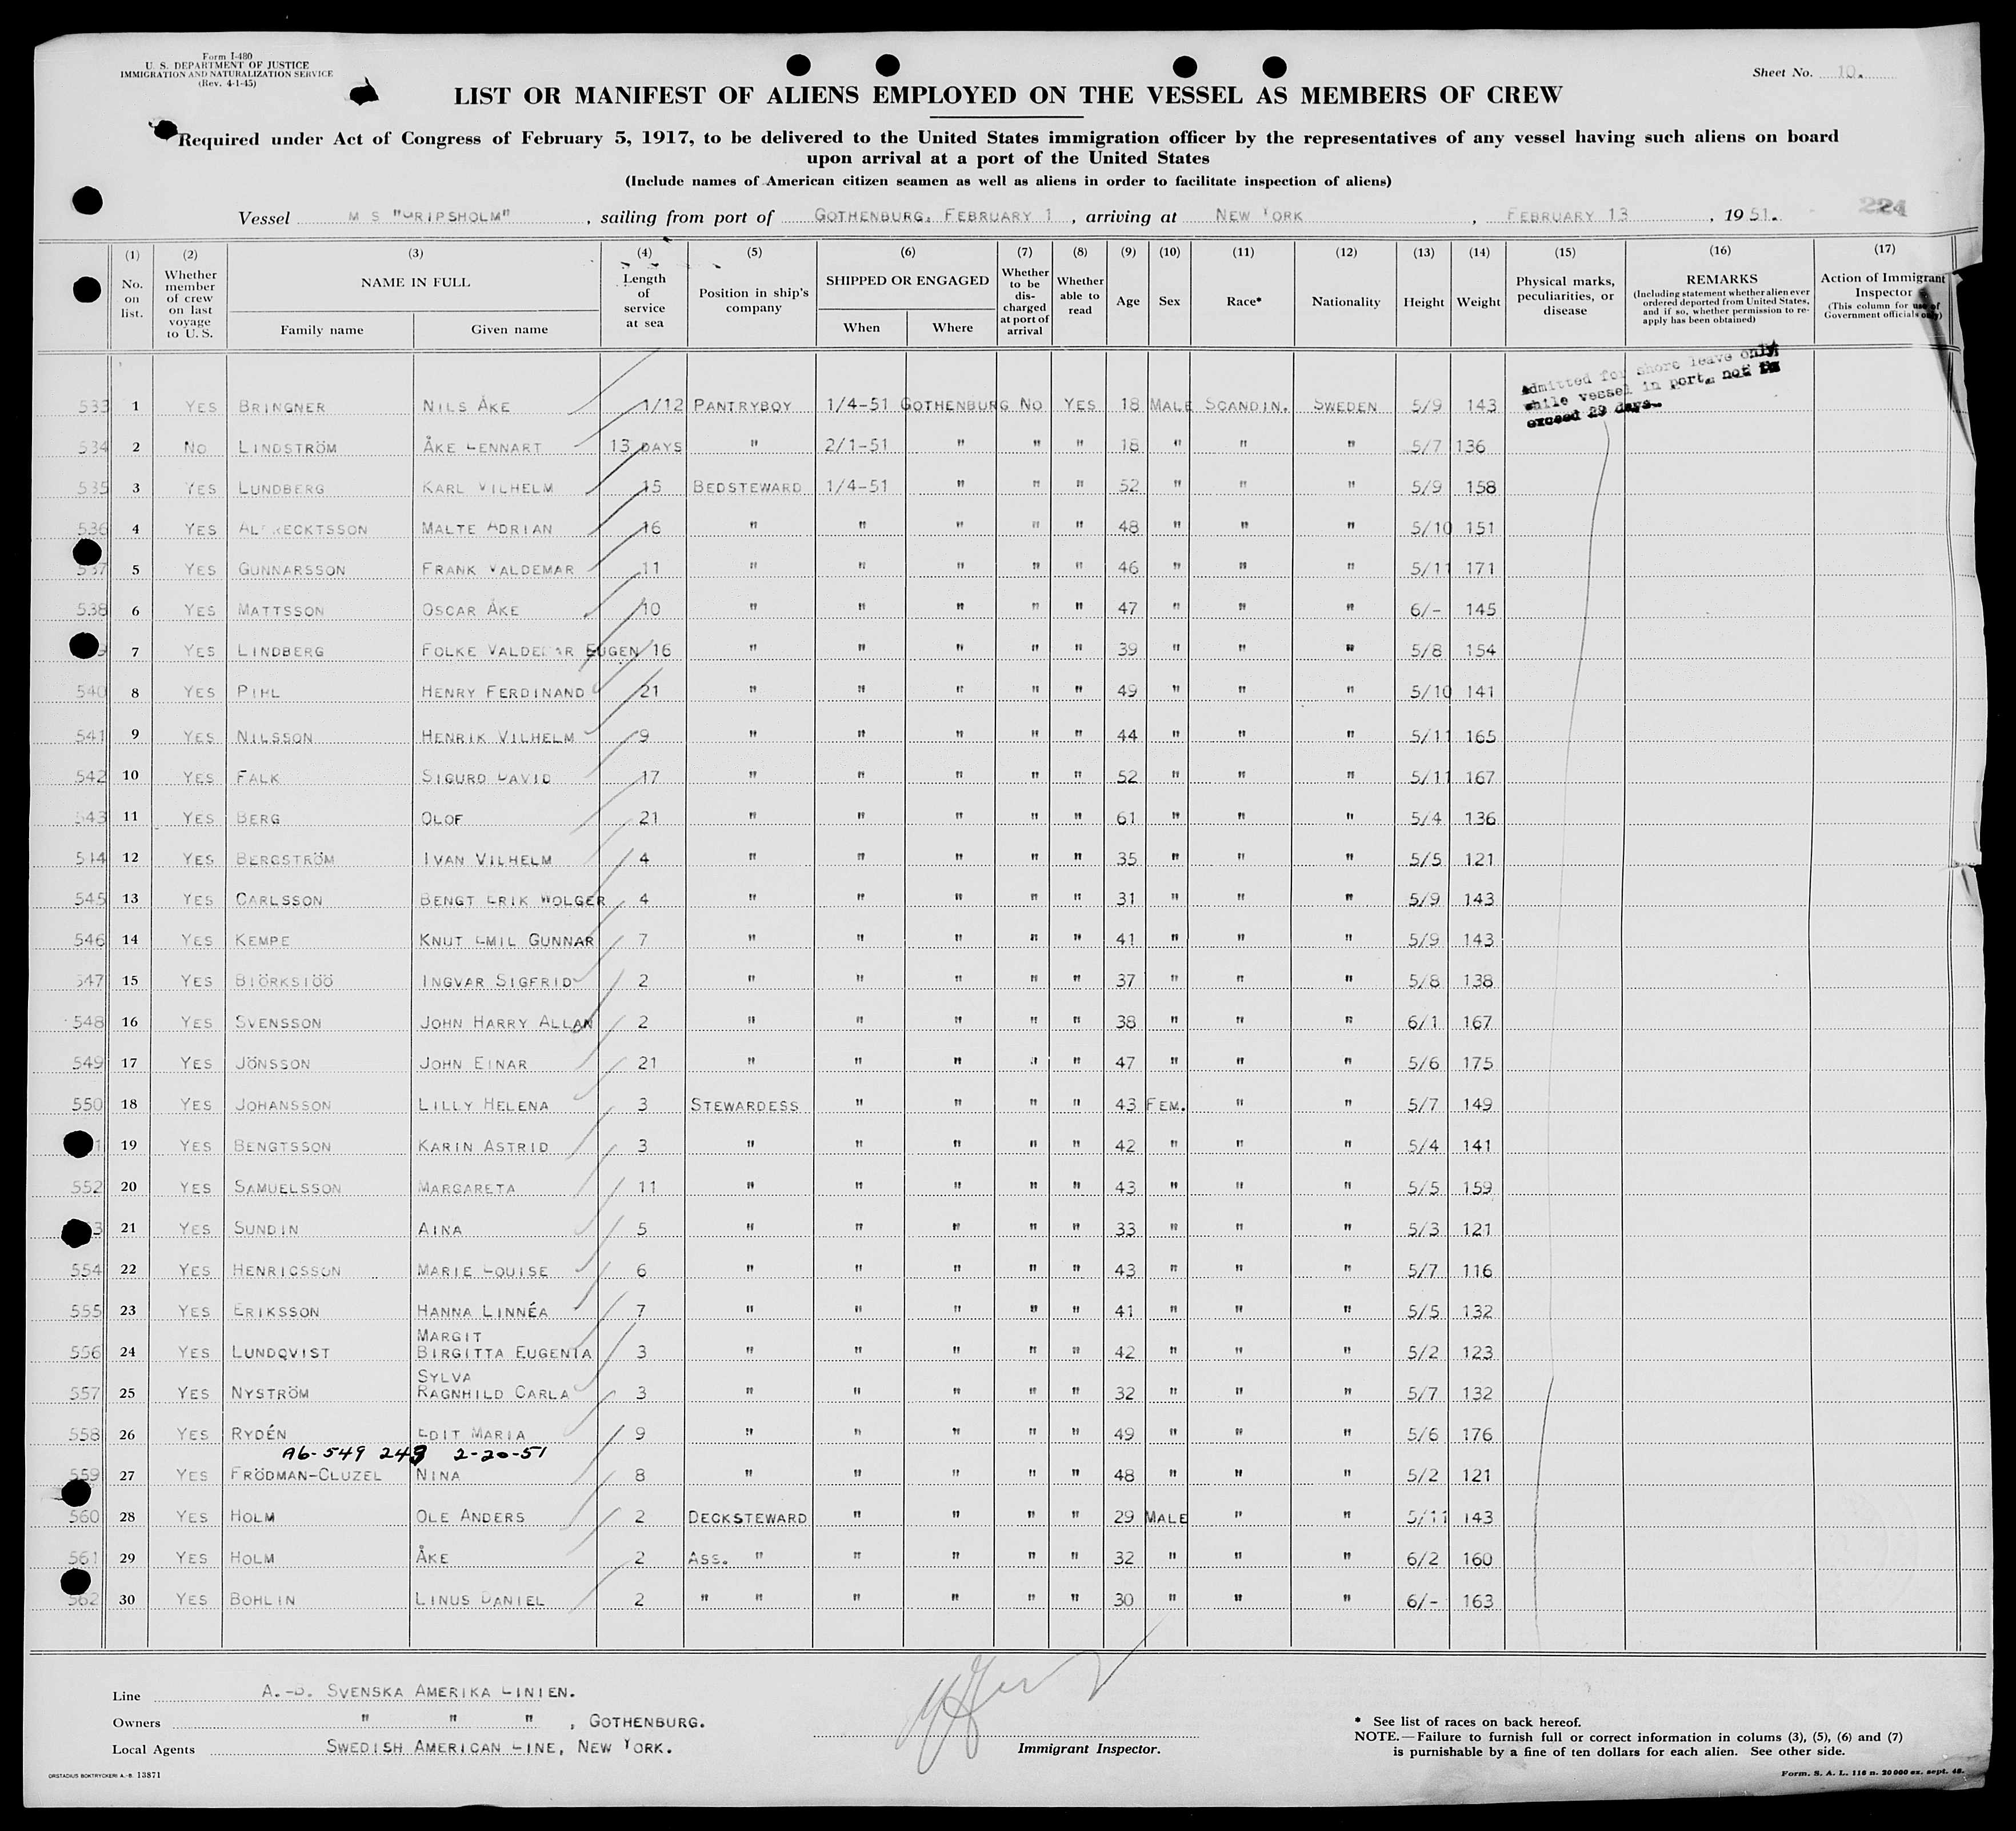 Form I-480
U. S. DEPARTMENT OF JUSTICE
IMMIGRATION AND NATURALIZATION SERVICE
(Rev. 4-1-45)
Sheet No. 10.
LIST OR MANIFEST OF ALIENS EMPLOYED ON THE VESSEL AS MEMBERS OF CREW
Required under Act of Congress of February 5, 1917, to be delivered to the United States immigration officer by the representatives of any vessel having such aliens on board
upon arrival at a port of the United States
(Include names of American citizen seamen as well as aliens in order to facilitate inspection of aliens)
Vessel M S "GRIPSHOLM", sailing from port of GOTHENBURG, FEBRUARY 1, arriving at NEW YORK, FEBRUARY 13, 1951. 224
(1) No. on list. (2) Whether member of crew on last voyage to U. S. (3) NAME IN FULL Family name Given name (4) Length of service at sea (5) Position in ship's company (6) SHIPPED OR ENGAGED When Where (7) Whether to be discharged at port of arrival (8) Whether able to read (9) Age (10) Sex (11) Race* (12) Nationality (13) Height (14) Weight (15) Physical marks, peculiarities, or disease (16) REMARKS (Including statement whether alien ever ordered deported from United States, and if so, whether permission to re-apply has been obtained) (17) Action of Immigrant Inspector (This column for use of Government officials only)
Admitted for shore leave only,
while vessel in port, not to
exceed 29 days.
533 1 YES BRINGNER NILS ÅKE 1/12 PANTRYBOY 1/4-51 GOTHENBURG NO YES 18 MALE SCANDIN. SWEDEN 5/9 143
534 2 NO LINDSTRÖM ÅKE LENNART 13 DAYS " 2/1-51 " " " 18 " " " 5/7 136
535 3 YES LUNDBERG KARL VILHELM 15 BEDSTEWARD 1/4-51 " " " 52 " " " 5/9 158
536 4 YES ALFRECKTSSON MALTE ADRIAN 16 " " " " " 48 " " " 5/10 151
537 5 YES GUNNARSSON FRANK VALDEMAR 11 " " " " " 46 " " " 5/11 171
538 6 YES MATTSSON OSCAR ÅKE 10 " " " " " 47 " " " 6/- 145
7 YES LINDBERG FOLKE VALDEMAR EUGEN 16 " " " " " 39 " " " 5/8 154
540 8 YES PIHL HENRY FERDINAND 21 " " " " " 49 " " " 5/10 141
541 9 YES NILSSON HENRIK VILHELM 9 " " " " " 44 " " " 5/11 165
542 10 YES FALK SIGURD DAVID 17 " " " " " 52 " " " 5/11 167
543 11 YES BERG OLOF 21 " " " " " 61 " " " 5/4 136
544 12 YES BERGSTRÖM IVAN VILHELM 4 " " " " " 35 " " " 5/5 121
545 13 YES CARLSSON BENGT ERIK WOLGER 4 " " " " " 31 " " " 5/9 143
546 14 YES KEMPE KNUT EMIL GUNNAR 7 " " " " " 41 " " " 5/9 143
547 15 YES BIÖRKSIÖÖ INGVAR SIGFRID 2 " " " " " 37 " " " 5/8 138
548 16 YES SVENSSON JOHN HARRY ALLAN 2 " " " " " 38 " " " 6/1 167
549 17 YES JÖNSSON JOHN EINAR 21 " " " " " 47 " " " 5/6 175
550 18 YES JOHANSSON LILLY HELENA 3 STEWARDESS " " " " 43 FEM. " " 5/7 149
19 YES BENGTSSON KARIN ASTRID 3 " " " " " 42 " " " 5/4 141
552 20 YES SAMUELSSON MARGARETA 11 " " " " " 43 " " " 5/5 159
21 YES SUNDIN AINA 5 " " " " " 33 " " " 5/3 121
554 22 YES HENRICSSON MARIE LOUISE 6 " " " " " 43 " " " 5/7 116
555 23 YES ERIKSSON HANNA LINNÉA 7 " " " " " 41 " " " 5/5 132
MARGIT
556 24 YES LUNDQVIST BIRGITTA EUGENIA 3 " " " " " 42 " " " 5/2 123
SYLVA
557 25 YES NYSTRÖM RAGNHILD CARLA 3 " " " " " 32 " " " 5/7 132
558 26 YES RYDÉN EDIT MARIA 9 " " " " " 49 " " " 5/6 176
A6-549 243 2-20-51
559 27 YES FRÖDMAN-CLUZEL NINA 8 " " " " " 48 " " " 5/2 121
560 28 YES HOLM OLE ANDERS 2 DECKSTEWARD " " " " 29 MALE " " 5/11 143
561 29 YES HOLM ÅKE 2 ASS. " " " " " 32 " " " 6/2 160
562 30 YES BOHLIN LINUS DANIEL 2 " " " " " " 30 " " " 6/- 163
Line A.-B. SVENSKA AMERIKA LINIEN.
Owners " " " , GOTHENBURG.
Local Agents SWEDISH AMERICAN LINE, NEW YORK.
Immigrant Inspector.
* See list of races on back hereof.
NOTE.—Failure to furnish full or correct information in colums (3), (5), (6) and (7)
is punishable by a fine of ten dollars for each alien. See other side.
ORSTADIUS BOKTRYCKERI A.-B. 13871
Form. S. A. L. 116 n. 20 000 ex. sept. 48.